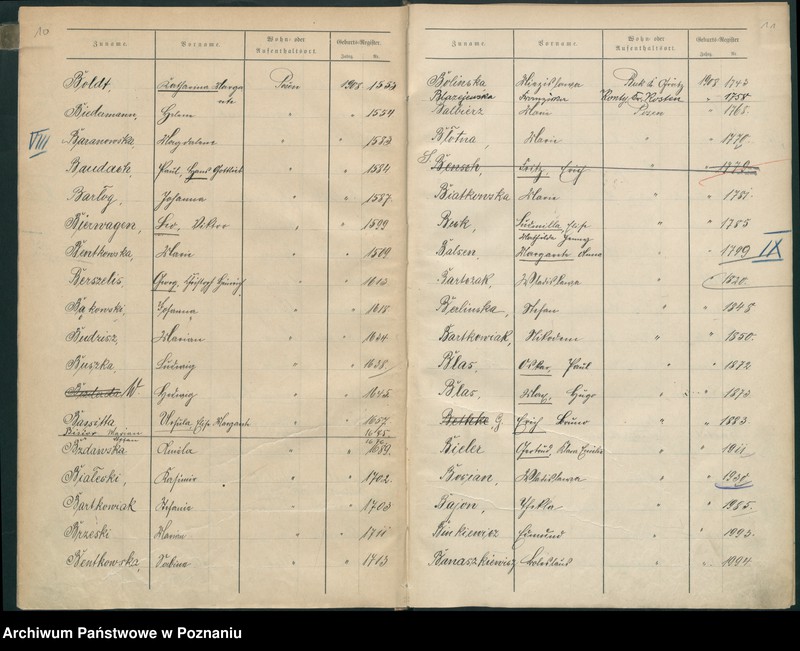 10
Zuname. Vorname. Wohn- oder Aufenthaltsort. Geburts-Register. Jahrg. Nr.
Boldt, Katharina Marga- Posen 1908 1553
rete
Biedermann, " " 1554
VIII Baranowska, Magdalena " " 1583
Baudach, Paul, Hans Gottlieb " " 1584
Bartog, Johanna " " 1587
Bierwagen, Leo, Viktor " " 1599
Bentkowska, Marie " " 1609
Berszelis, Georg, Christoph Heinrich " " 1612
Bąkowski, Johanna " " 1618
Budzisz, Marian " " 1624
Buszka, Ludwig " " 1638
Hedwig " " 1645
Bassitta, Ursula, Else Margarete " " 1657
Marian 1665
Bzdawska " " 1689
Bialecki, Kasimir " 1702.
Bartkowiak Stefanie " " 1703
Brzeski Marian " " 1711
Bentkowska, Sabina " " 1713
11
Zuname. Vorname. Wohn- oder Aufenthaltsort. Geburts-Register. Jahrg. Nr.
Bolinska 1908 1743
Blazejewska Franziska Kosten " 1758
Balbierz Marie Posen " 1765.
Blotna, Marie " " 1770.
Bensch, Fritz, Erich " " 1779
Bialkowska Marie " " 1781.
Buk, Ludmilla, Else " " 1785
Mathilde
Balsen, Margarete Anna " 1799 IX
Bartczak, Wladislawa " " 1820.
Berlinska, Stefan " " 1848
Bartkowiak, Nikodem " " 1850.
Blas, Oskar, Paul " " 1872
Blas, Max, Hugo " 1873
Bethke, G. Erich Bruno " " 1883.
Bieler Gertrud, Klara " " 1911
Bosian, Wladislawa " " 1930
Bajon, Thekla " " 1985.
Binkiewicz Edmund " " 1993.
Banaszkiewicz Boleslaus " " 1994.
Archiwum Państwowe w Poznaniu